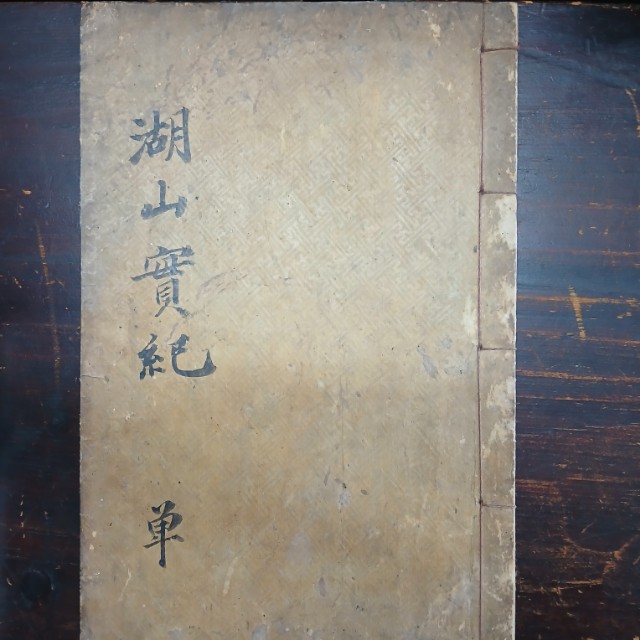 湖山實紀
单